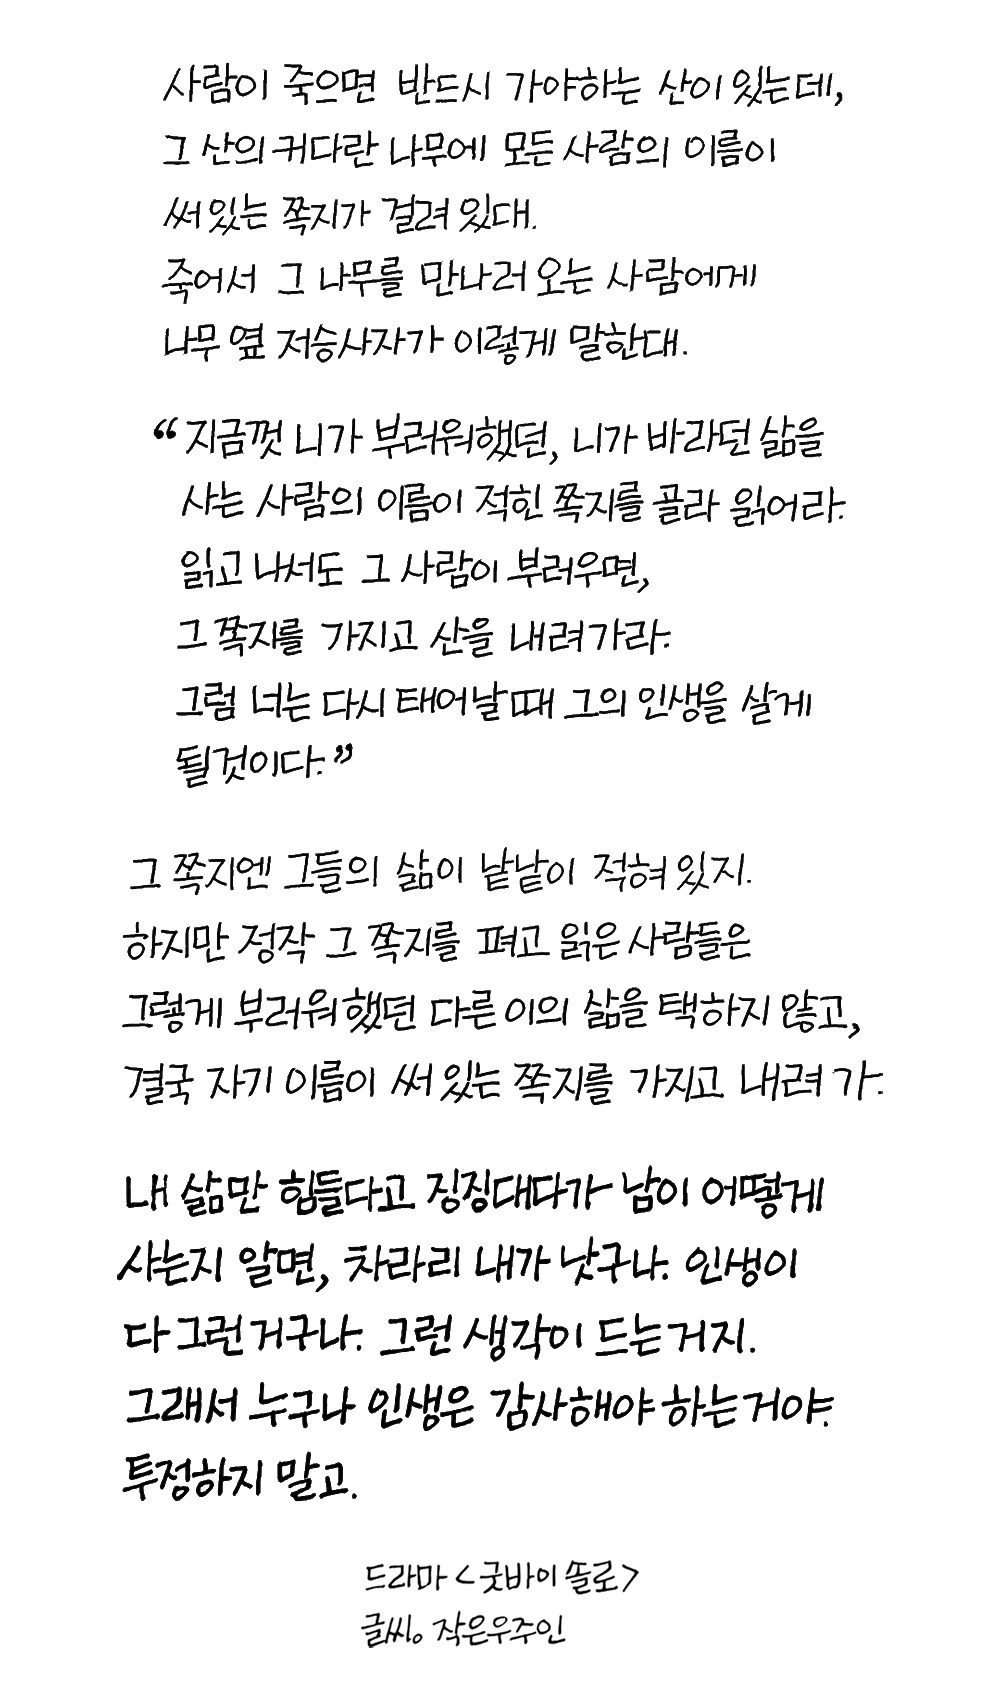 사람이 죽으면 반드시 가야하는 산이 있는데,
그 산의 커다란 나무에 모든 사람의 이름이
써 있는 쪽지가 걸려 있대.
죽어서 그 나무를 만나러 오는 사람에게
나무 옆 저승사자가 이렇게 말한대.
“지금껏 니가 부러워했던, 니가 바라던 삶을
사는 사람의 이름이 적힌 쪽지를 골라 읽어라.
읽고 나서도 그 사람이 부러우면,
그 쪽지를 가지고 산을 내려가라.
그럼 너는 다시 태어날 때 그의 인생을 살게
될것이다.”
그 쪽지엔 그들의 삶이 낱낱이 적혀 있지.
하지만 정작 그 쪽지를 펴고 읽은 사람들은
그렇게 부러워했던 다른 이의 삶을 택하지 않고,
결국 자기 이름이 써 있는 쪽지를 가지고 내려 가.
내 삶만 힘들다고 징징대다가 남이 어떻게
사는지 알면, 차라리 내가 낫구나. 인생이
다 그런거구나. 그런 생각이 드는거지.
그래서 누구나 인생은 감사해야 하는거야.
투정하지 말고.
드라마 <굿바이 솔로>
글씨。작은우주인